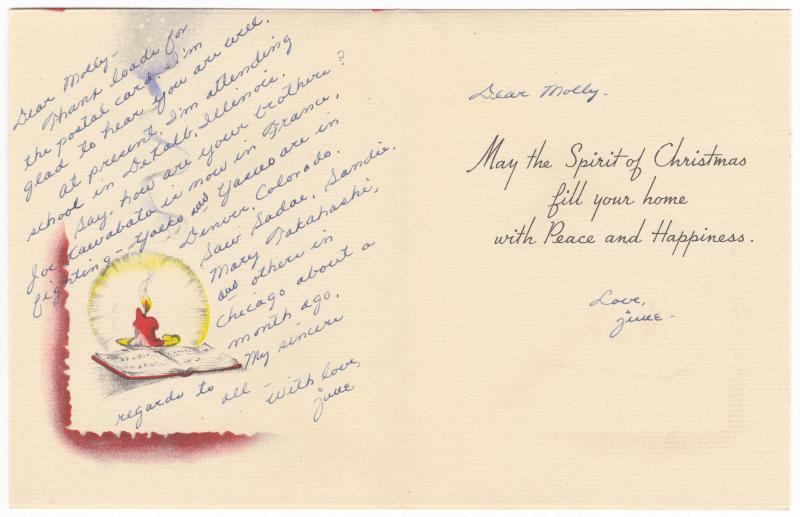 Dear Molly-
Thank loads for
the postal card. I'm
glad to hear you are well.
At present, I'm attending
school in DeKalb, Illinois.
Say, how are your brothers?
Joe Kawabata is now in France,
fighting - Yaeko and Yasuo are in
Denver, Colorado.
Saw Sadae, Sandie,
Mary Takahashi,
and others in
Chicago about a
month ago.
My sincere
regards to all -
With love,
June
Dear Molly-
May the Spirit of Christmas
fill your home
with Peace and Happiness.
Love,
June-